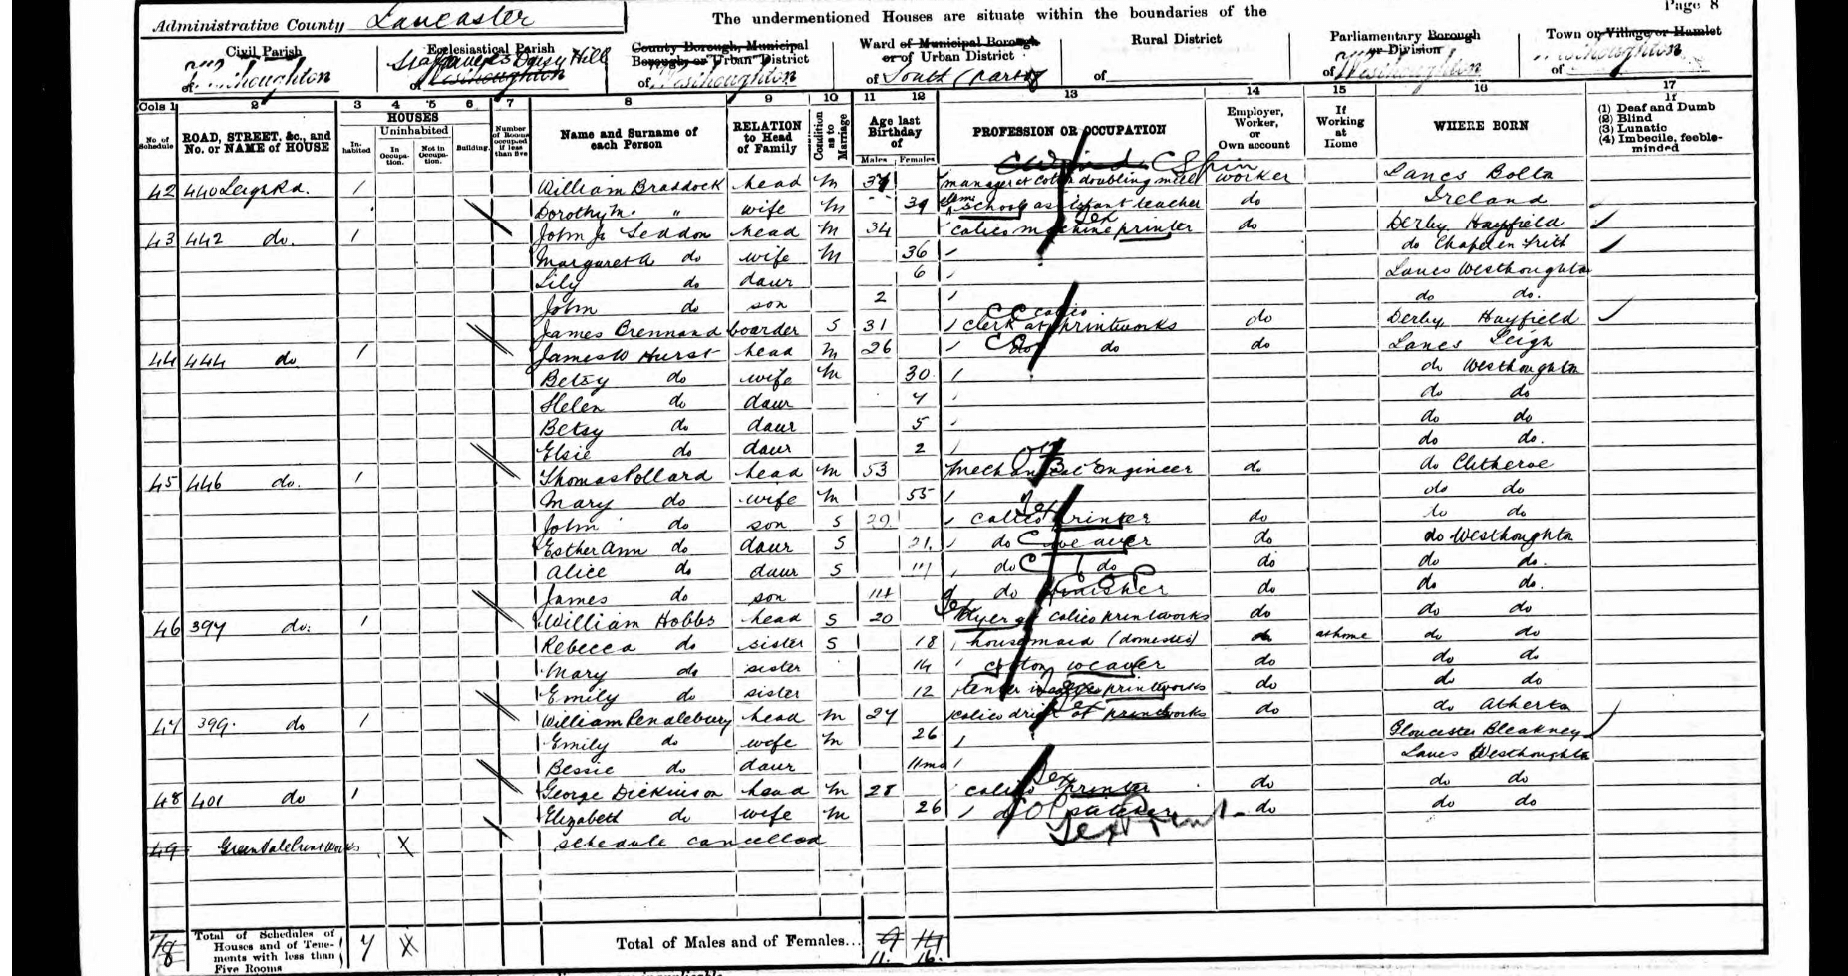 Page 8
Administrative County Lancaster The undermentioned Houses are situate within the boundaries of the
Civil Parish Ecclesiastical Parish County Borough, Municipal Borough or Urban District Ward of Municipal Borough or of Urban District Rural District Parliamentary Borough or Division Town or Village or Hamlet
of Westhoughton of Westhoughton Daisy Hill of Westhoughton of South (part of) of of Westhoughton of Westhoughton
Cols 1 2 3 4 5 6 7 8 9 10 11 12 13 14 15 16 17
No. of Schedule ROAD, STREET, &c., and No. or NAME of HOUSE HOUSES Inhabited Uninhabited In Occupation. Not in Occupation. Building. Number of Rooms occupied if less than five Name and Surname of each Person RELATION to Head of Family Condition as to Marriage Age last Birthday of Males Females PROFESSION OR OCCUPATION Employer, Worker, or Own account If Working at Home WHERE BORN If (1) Deaf and Dumb (2) Blind (3) Lunatic (4) Imbecile, feeble-minded
C Spin
42 440 Leigh Rd. 1 William Braddock head M manager at cotton doubling mill worker Lancs Bolton
Dorothy M. " wife M 39 school assistant teacher do Ireland
43 442 do. 1 John Jr Seddon head M 34 calico machine printer do Derby Hayfield
Margaret A do wife M 36 do Chapel en Frith
Lily do daur 6 Lancs Westhoughton
John do son 2 do do.
James Brennand boarder S 31 clerk at calico printworks do Derby Hayfield
44 444 do 1 James W Hurst head M 26 do do do Lancs Leigh
Betsy do wife M 30 do Westhoughton
Helen do daur 7 do do
Betsy do daur 5 do do
Elsie do daur 2 do do.
45 446 do. 1 Thomas Pollard head M 53 Mechanical Engineer do do Clitheroe
Mary do wife M 55 do do
John do son S 29 calico printer do do do
Esther Ann do daur S 21 do weaver do do Westhoughton
Alice do daur S do do do do do.
James do son 14 do finisher do do do.
46 397 do. 1 William Hobbs head S 20 dyer at calico printworks do do do
Rebecca do sister S 18 housemaid (domestic) at home do do
Mary do sister 14 cotton weaver do do do
Emily do sister 12 tenter in calico printworks do do do
47 399 do 1 William Pendlebury head M 27 calico drier at printworks do do Atherton
Emily do wife M 26 Gloucester Bleakney
Bessie do daur 11mo Lancs Westhoughton
48 401 do 1 George Dickinson head M 28 calico printer do do do
Elizabeth do wife M 26 do do do do
49 Greenvale Printworks X schedule cancelled
Total of Schedules of Houses and of Tenements with less than Five Rooms 7 X Total of Males and of Females... 11. 16.